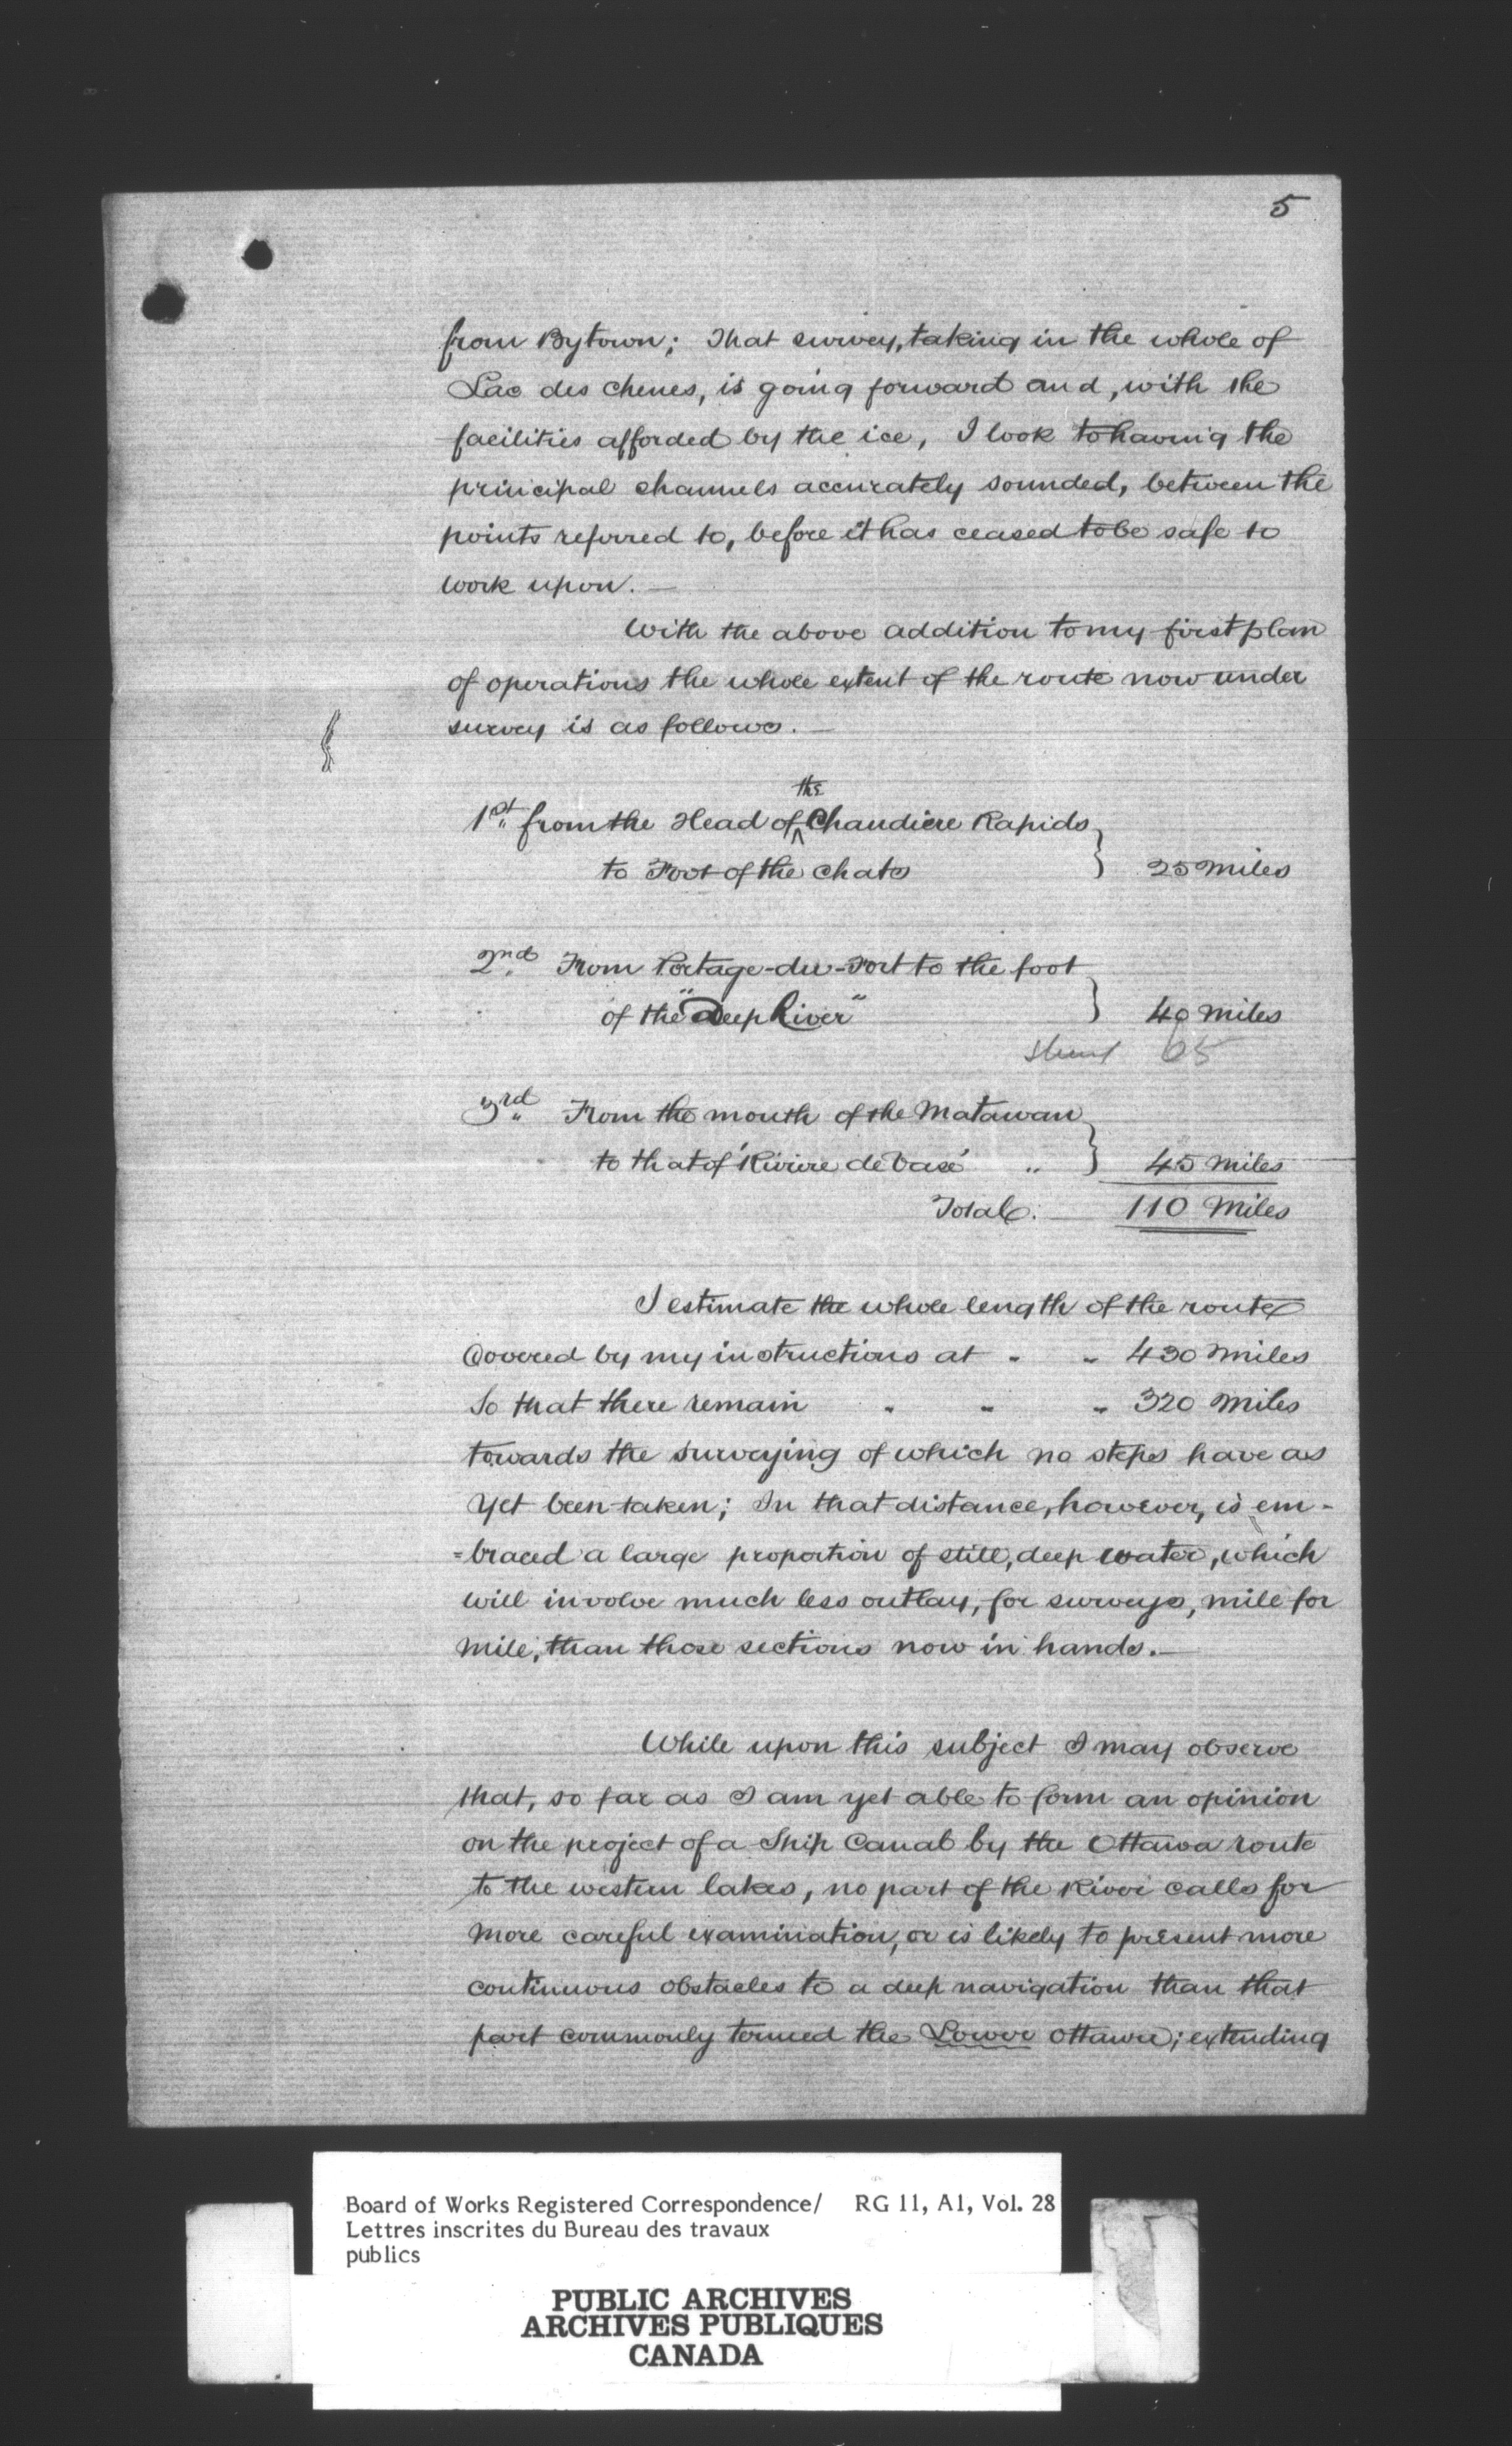 5
from Bytown; That survey, taking in the whole of
Lac des chenes, is going forward and, with the
facilities afforded by the ice, I look to having the
principal channels accurately sounded, between the
points referred to, before it has ceased to be safe to
work upon. —
With the above addition to my first plan
of operations the whole extent of the route now under
survey is as follows. —
the
1st from the Head of ^ Chaudiere Rapids
to Foot of the Chats } 25 Miles
2nd From Portage-du-Fort to the foot
of the "Deep River" } 40 Miles
65
3rd From the mouth of the Matawan
to that of 'Riviere de Vase' " } 45 Miles
Total. — 110 Miles
I estimate the whole length of the route
Covered by my instructions at - - 430 Miles
So that there remain - - - 320 Miles
towards the surveying of which no steps have as
yet been taken; In that distance, however, is em-
=braced a large proportion of still, deep water, which
will involve much less outlay, for surveys, mile for
mile, than those sections now in hands. —
While upon this subject I may observe
that, so far as I am yet able to form an opinion
on the project of a Ship Canal by the Ottawa route
to the western lakes, no part of the River calls for
more careful examination, or is likely to present more
continuous obstacles to a deep navigation than that
part commonly termed the Lower Ottawa; extending
Board of Works Registered Correspondence/ RG 11, A1, Vol. 28
Lettres inscrites du Bureau des travaux
publics
PUBLIC ARCHIVES
ARCHIVES PUBLIQUES
CANADA